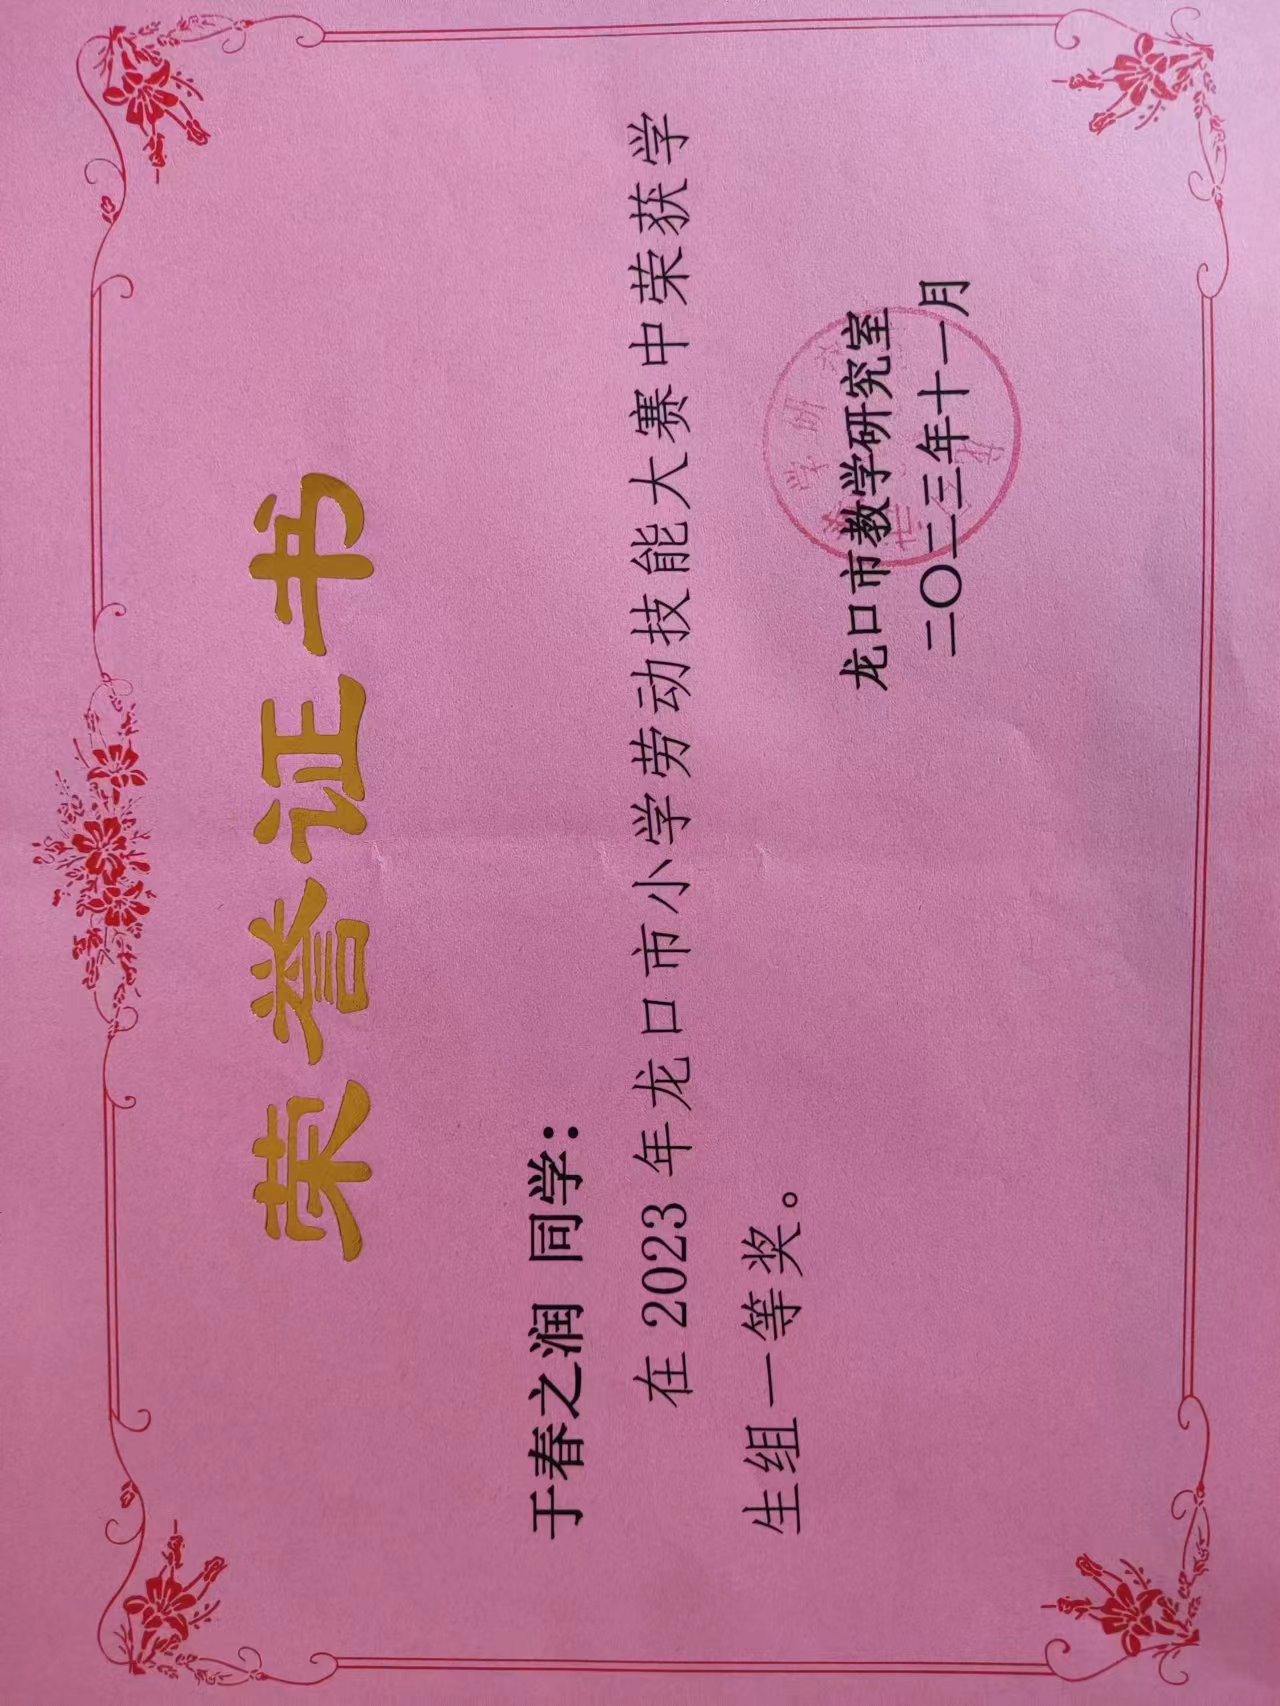 荣誉证书
于春之润 同学：
在 2023 年龙口市小学劳动技能大赛中荣获学
生组一等奖。
龙口市教学研究室
二〇二三年十一月